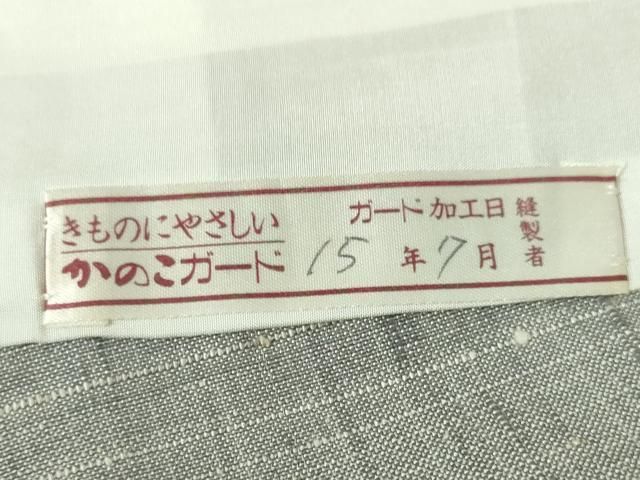 きものにやさしい
かのこガード
ガード加工日
15年7月
縫製者